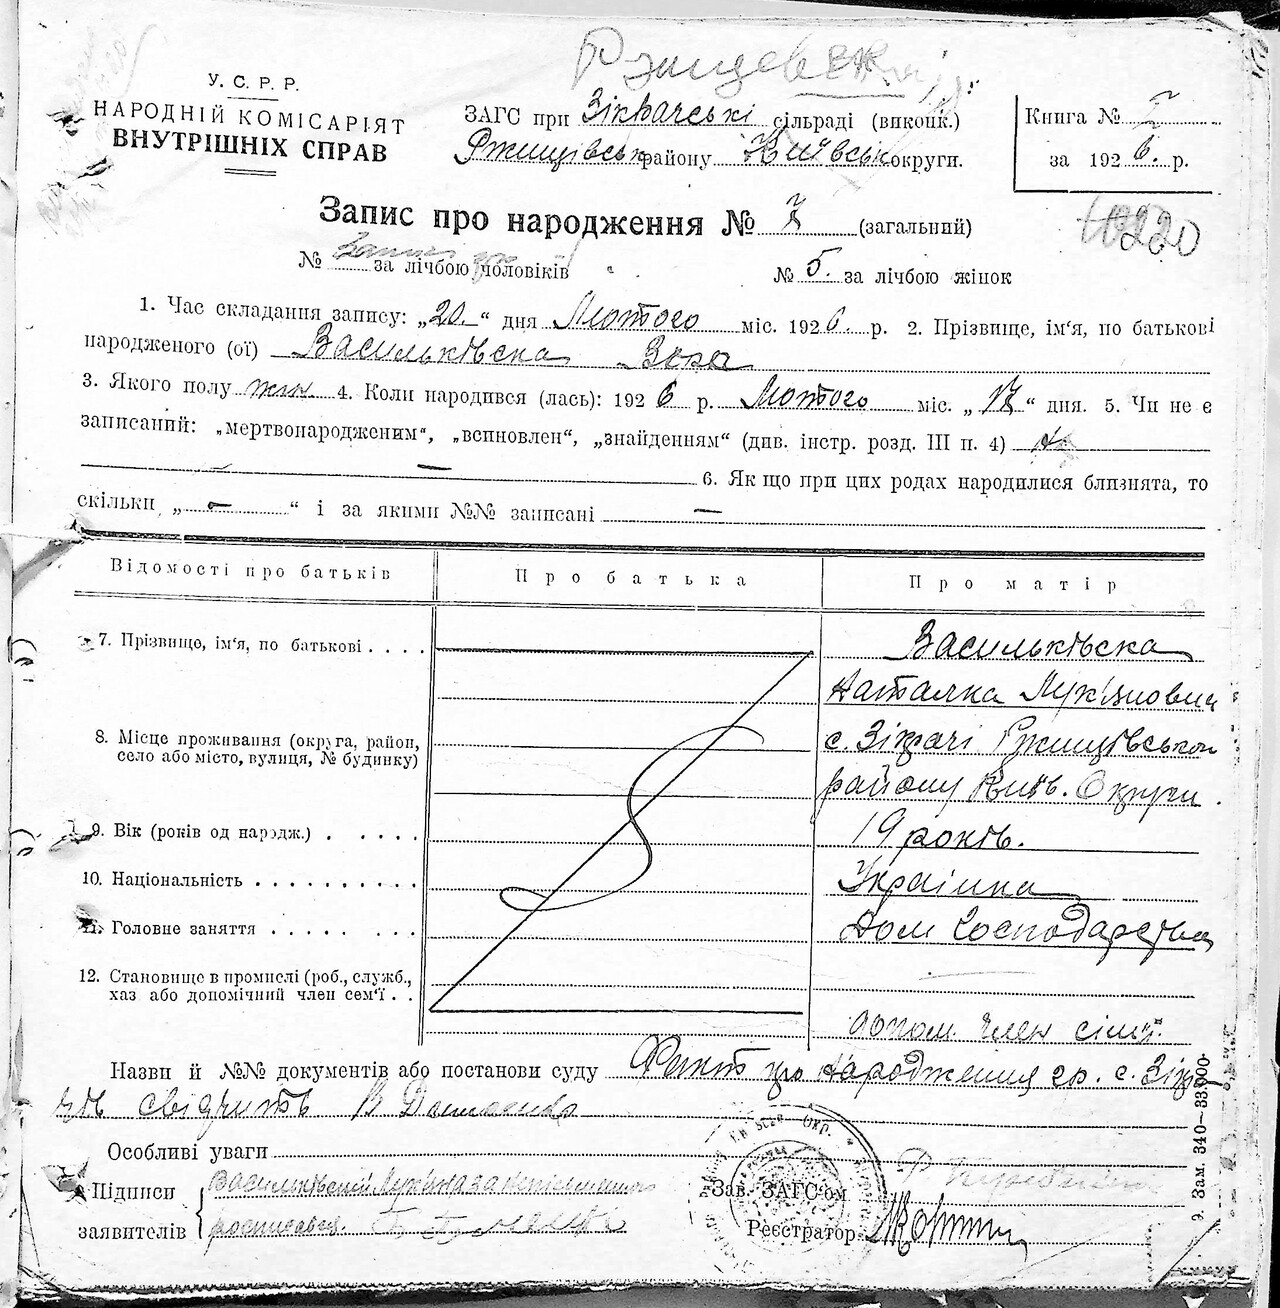 У. С. Р. Р.
НАРОДНІЙ КОМІСАРІЯТ
ВНУТРІШНІХ СПРАВ
ЗАГС при Зікрачські сільраді (виконк.)
Ржищівськ району Київськ округи.
Книга № I
за 1926. р.
Запис про народження № 7 (загальний)
10220
№ за лічбою чоловіків № 5. за лічбою жінок
1. Час складання запису: „20.“ дня Лютого міс. 1926. р. 2. Прізвище, ім‘я, по батькові
народженого (ої) Васильківска Вера
3. Якого полу жін. 4. Коли народився (лась): 1926 р. Лютого міс. „17“ дня. 5. Чи не є
записаний: „мертвонародженим“, „вспновлен“, „знайденням“ (див. інстр. розд. III п. 4)
— 6. Як що при цих родах народилися близнята, то
скільки „—“ і за якими №№ записані —
Відомості про батьків Про батька Про матір
7. Прізвище, ім‘я, по батькові . . . . Васильківска
Наталка Лук‘яновна
8. Місце проживання (округа, район, с. Зікрачі Ржищівського
село або місто, вулиця, № будинку) району Київ. Округи.
9. Вік (років од народж.) . . . . . . 19 років.
10. Національність . . . . . . . . . . Українка
11. Головне заняття . . . . . . . . Дом Господарства
12. Становище в промислі (роб., служб.,
хаз або допомічний член сем‘ї . . допом. член сімї.
Назви й №№ документів або постанови суду Факт про народження гр. с. Зікр
свідчить В
Особливі уваги
Підписи Васильківский Лукіян за неписьменного
заявителів росписався.
Зав. ЗАГС‘ом
Реєстратор
9. Зам. 340—33000